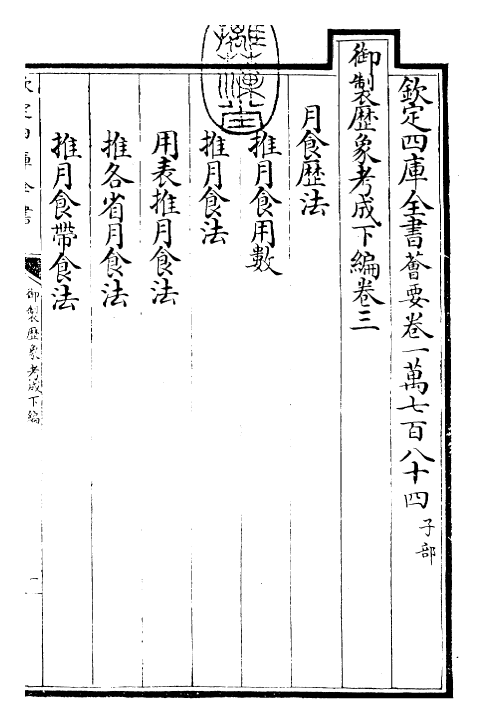 欽定四庫全書薈要卷一萬七百八十四 子部
御製歷象考成下編卷三
月食歷法
推月食用數
推月食法
用表推月食法
推各省月食法
推月食帶食法
欽定四庫全書
御製歷象考成下編